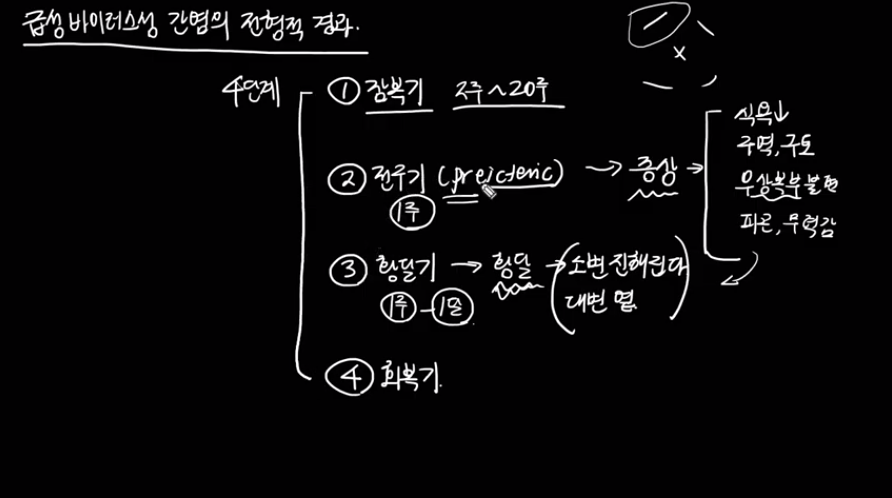 급성 바이러스성 간염의 전형적 경과.
4단계
① 잠복기 2주~20주
② 전구기 (preicteric) → 증상 →
1주
식욕↓
구역, 구토
우상복부 불편
피로, 무력감
③ 황달기 → 황달 → (소변 진해린다
1주-1달
대변 옅)
④ 회복기.